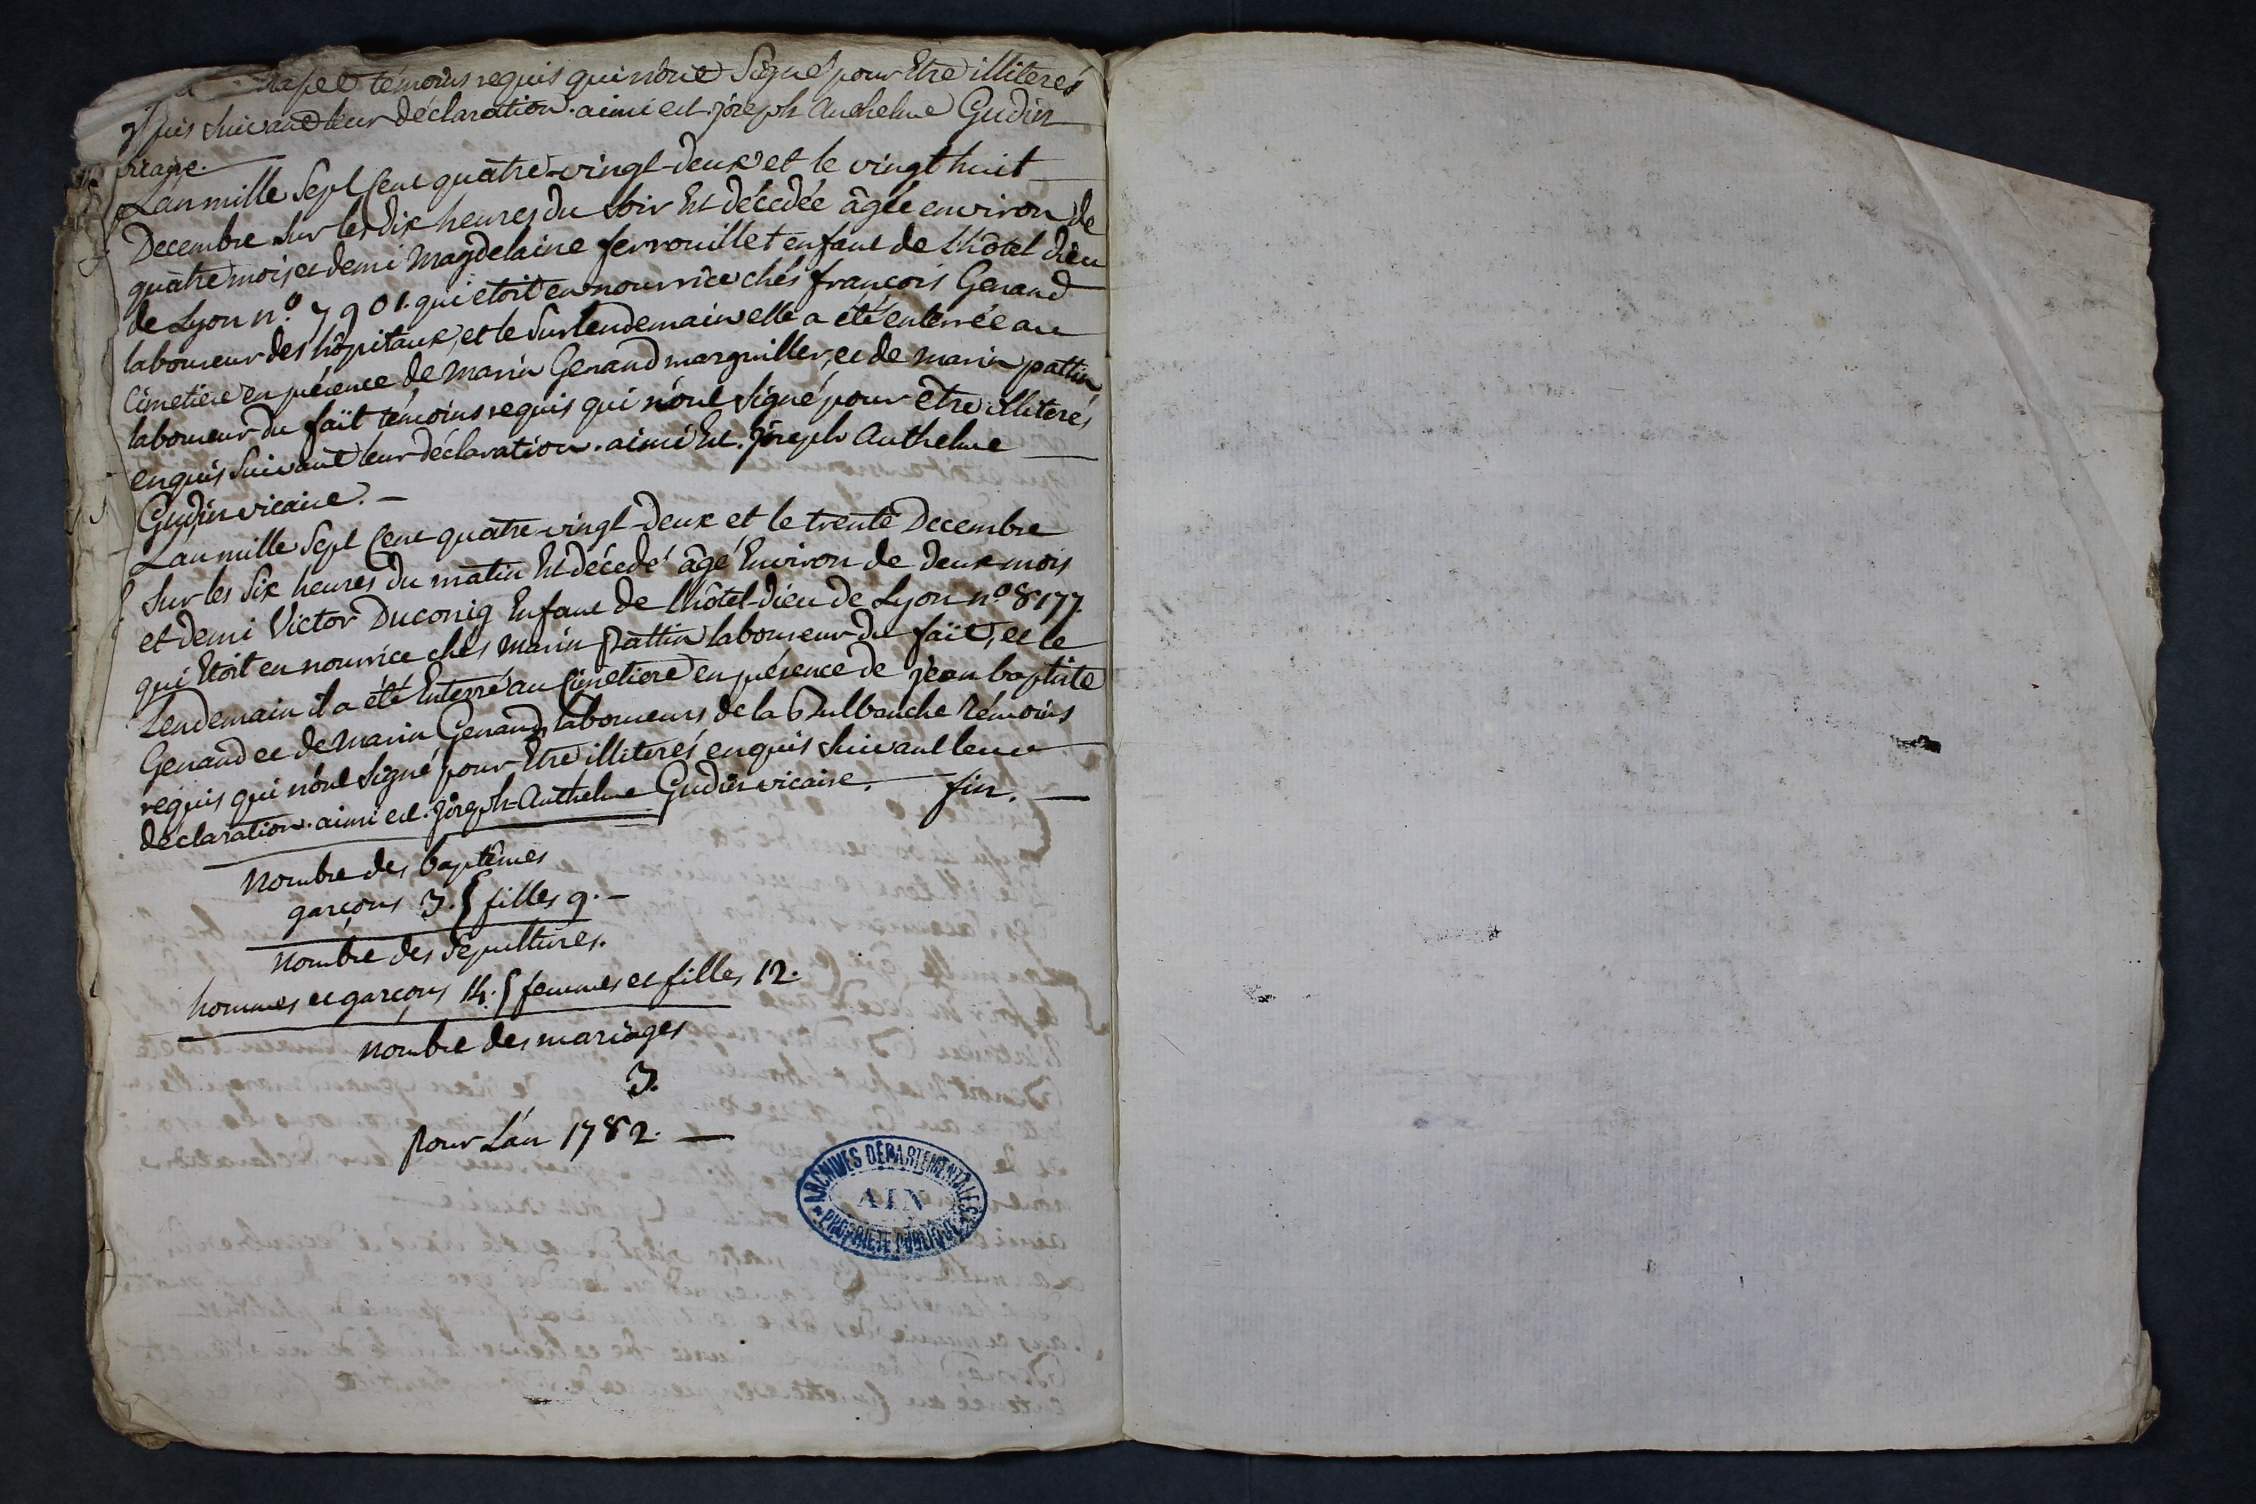 témoins requis qui n'ont Signé pour Etre illiterés
suivant leur déclaration. ainsi est. joseph Anthelme Gudin
vicaire.
L'an mille Sept Cent quatre-vingt-deux et le vingt huit
Decembre sur les dix heures du soir Est décédée âgée environ de
quatre mois et demi Magdelaine ferrouillet enfant de L'hôtel dieu
de Lyon n.º 7901. qui etoit en nourrice chés françois Genand
laboureur des hôpitaux, et le Surlendemain elle a été enterrée au
Cimetiere en présence de Marin Genand marguiller, et de Marin pattin
laboureur du faït témoins requis qui n'ont Signé pour être illiterés
enquis Suivant leur déclaration. ainsi Est. joseph Anthelme
Gudin vicaire. —
L'an mille Sept Cent quatre-vingt-deux et le trente Decembre
Sur les Six heures du matin Est décédé âgé Environ de deux mois
et demi Victor Duconig Enfant de l'hôtel-dieu de Lyon nº 8177.
qui Etoit en nourrice chés Marin Pattin laboureur du faït, et le
Lendemain il a été Enterré au Cimetiere en présence de jean baptiste
Genand et de Marin Genand laboureurs de la témoins
requis qui n'ont Signé pour Etre illiterés enquis Suivant leur
déclaration. ainsi est. joseph-Anthelme Gudin vicaire. fin. —
Nombre des baptêmes
garçons 3. { filles 9. —
Nombre des Sepultures.
hommes et garçons 14. { femmes et filles 12.
Nombre des mariages
3.
pour L'an 1782. —
ARCHIVES DÉPARTEMENTALES
AIN
PROPRIÉTÉ PUBLIQUE